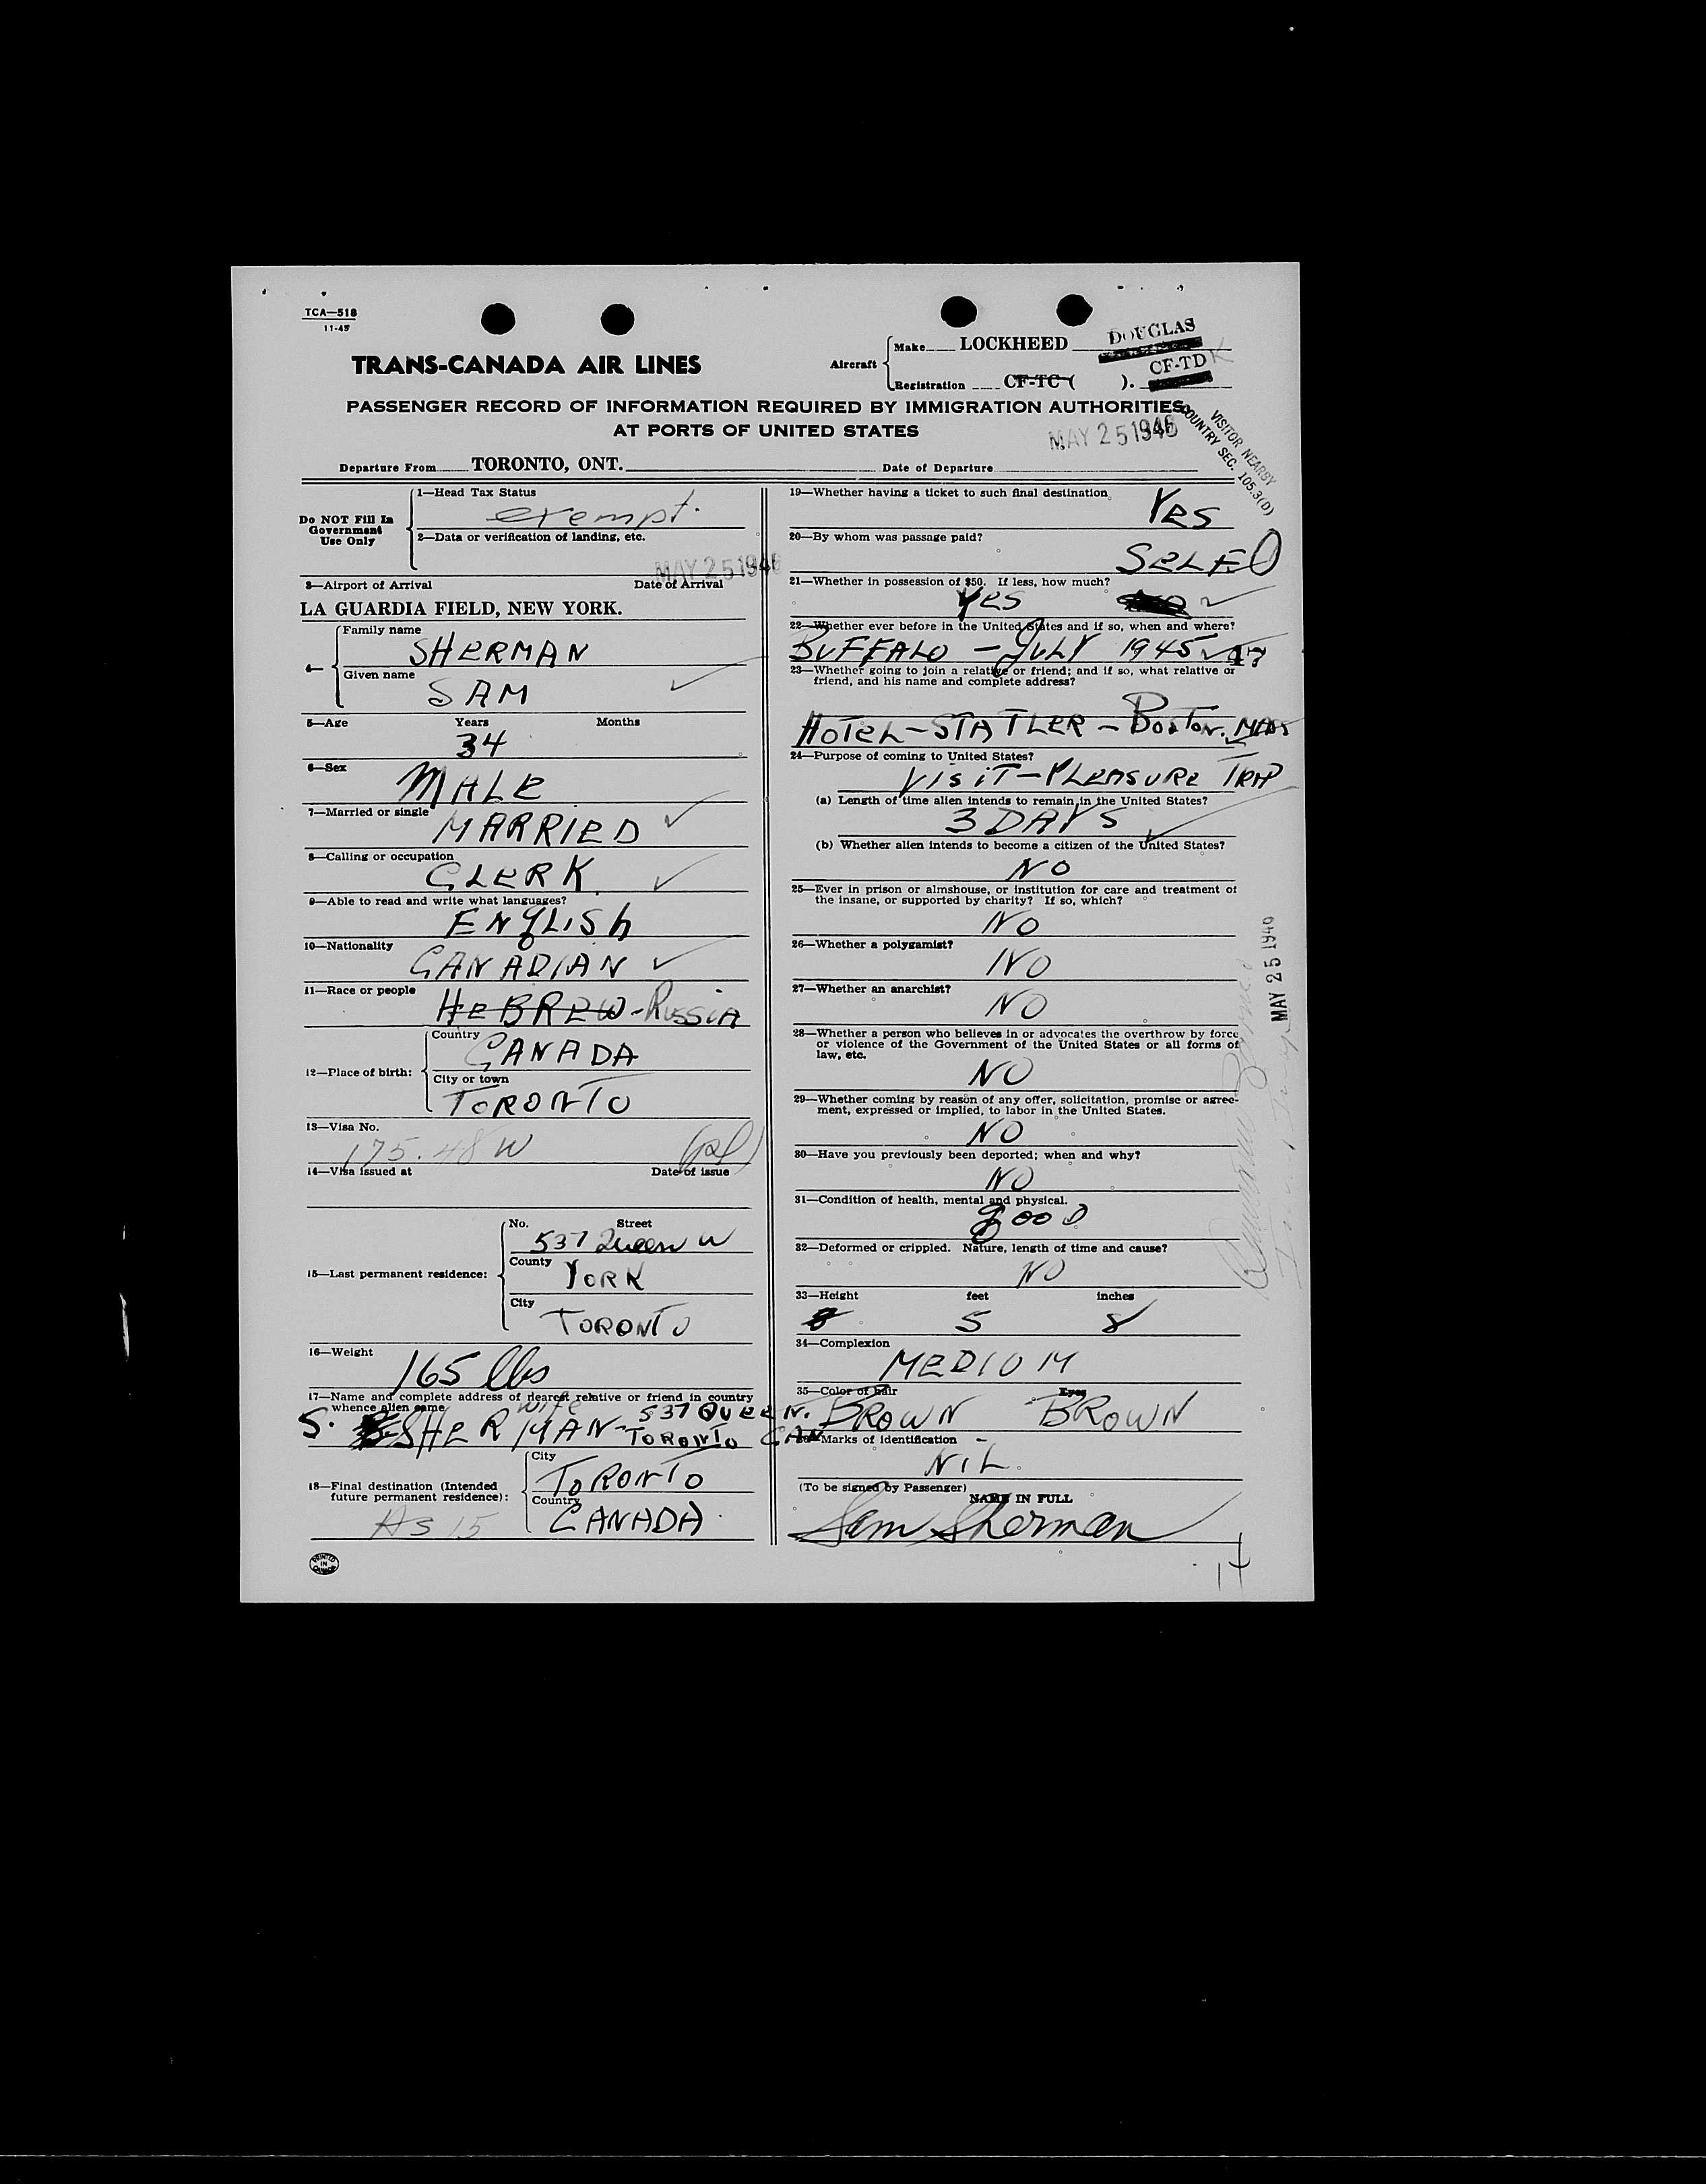 TCA—518
11-45
TRANS-CANADA AIR LINES
Aircraft
Make LOCKHEED DOUGLAS
Registration CF-TC ( ). CF-TD K
PASSENGER RECORD OF INFORMATION REQUIRED BY IMMIGRATION AUTHORITIES
AT PORTS OF UNITED STATES
MAY 25 1946
VISITOR NEARBY
COUNTRY SEC. 105.3(D)
Departure From TORONTO, ONT. Date of Departure
Do NOT Fill In
Government
Use Only
1—Head Tax Status
exempt.
2—Data or verification of landing, etc.
MAY 25 1946
3—Airport of Arrival Date of Arrival
LA GUARDIA FIELD, NEW YORK.
4—
Family name
SHERMAN
Given name
SAM
5—Age Years Months
34
6—Sex
MALE
7—Married or single
MARRIED
8—Calling or occupation
CLERK
9—Able to read and write what languages?
ENGLISH
10—Nationality
CANADIAN
11—Race or people
HEBREW-RUSSIA
12—Place of birth:
Country
CANADA
City or town
TORONTO
13—Visa No.
175.48 W
14—Visa issued at Date of issue
15—Last permanent residence:
No. Street
537 Queen W
County
YORK
City
TORONTO
16—Weight
165 lbs
17—Name and complete address of nearest relative or friend in country
whence alien came
wife
S. SHERMAN- 537 QUEEN.
TORONTO CAN
18—Final destination (Intended
future permanent residence):
As 15
City
TORONTO
Country
CANADA
PRINTED
IN
CANADA
19—Whether having a ticket to such final destination
Yes
20—By whom was passage paid?
SELF
21—Whether in possession of $50. If less, how much?
Yes
22—Whether ever before in the United States and if so, when and where?
BUFFALO - JULY 1945
23—Whether going to join a relative or friend; and if so, what relative or
friend, and his name and complete address?
HOTEL-STATLER-BOSTON. MASS
24—Purpose of coming to United States?
VISIT-PLEASURE TRIP
(a) Length of time alien intends to remain in the United States?
3 DAYS
(b) Whether alien intends to become a citizen of the United States?
NO
25—Ever in prison or almshouse, or institution for care and treatment of
the insane, or supported by charity? If so, which?
NO
26—Whether a polygamist?
NO
27—Whether an anarchist?
NO
28—Whether a person who believes in or advocates the overthrow by force
or violence of the Government of the United States or all forms of
law, etc.
NO
29—Whether coming by reason of any offer, solicitation, promise or agree-
ment, expressed or implied, to labor in the United States.
NO
30—Have you previously been deported; when and why?
NO
31—Condition of health, mental and physical.
GOOD
32—Deformed or crippled. Nature, length of time and cause?
NO
33—Height feet inches
5 8
34—Complexion
MEDIUM
35—Color of Hair Eyes
BROWN BROWN
36—Marks of identification
NIL.
(To be signed by Passenger)
NAME IN FULL
Sam Sherman
MAY 25 1946